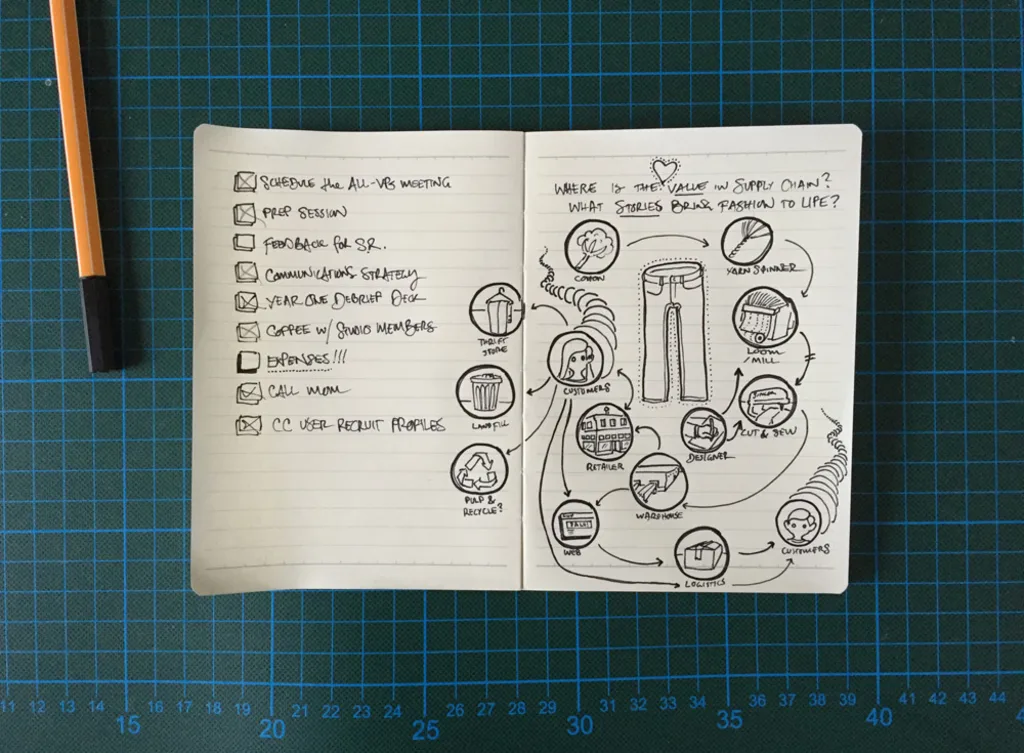 SCHEDULE the ALL-VPs MEETING
PREP SESSION
FEEDBACK FOR S.R.
COMMUNICATIONS STRATEGY
YEAR ONE DEBRIEF DECK
COFFEE W/ STUDIO MEMBERS
EXPENSES!!!
CALL MOM
CC USER RECRUIT PROFILES
THRIFT
STORE
LANDFILL
PULP &
RECYCLE?
WHERE IS THE VALUE IN SUPPLY CHAIN?
WHAT STORIES BRING FASHION TO LIFE?
COTTON
YARN SPINNER
LOOM
/MILL
CUSTOMERS
CUT & SEW
DESIGNER
RETAILER
WAREHOUSE
WEB
LOGISTICS
CUSTOMERS
11 12 13 14 15 16 17 18 19 20 21 22 23 24 25 26 27 28 29 30 31 32 33 34 35 36 37 38 39 40 41 42 43 44